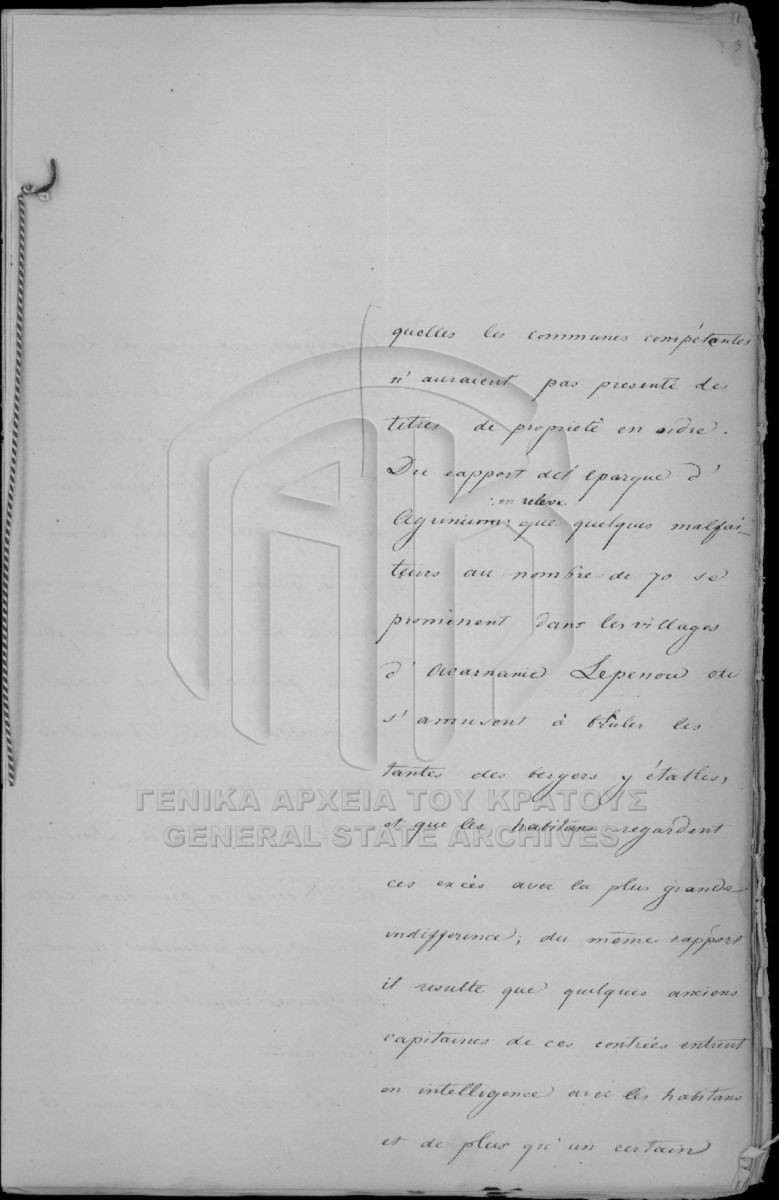 quelles les communes compétantes
n'auraient pas presenté des
titres de proprieté en ordre.
Du rapport de l'éparque d'
: on releve
Agrinium: que quelques malfai-
teurs au nombre de 70 se
prominent dans les villages
d'Acarnanie Lepenou
s'amusent à bruler les
tantes des bergers y établis,
ΓΕΝΙΚΑ ΑΡΧΕΙΑ ΤΟΥ ΚΡΑΤΟΥΣ
GENERAL STATE ARCHIVES
et que les habitans regardent
ces excés avec la plus grande
indifference; du même rapport
il resulte que quelques anciens
capitaines de ces contrées entrent
en intelligence avec les habitans
et de plus qu'un certain